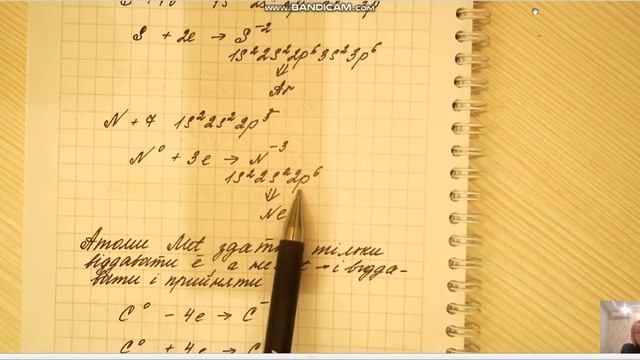 www.BANDICAM.com
S + 2e → S⁻²
1s²2s²2p⁶3s²3p⁶
⇓
Ar
N + 7 1s²2s²2p³
N⁰ + 3e → N⁻³
1s²2s²2p⁶
⇓
Ne
Атоми Met тільки
віддавати ē, а і відда-
вати і прийняти
C⁰ - 4e → C
C⁰ + 4e → C